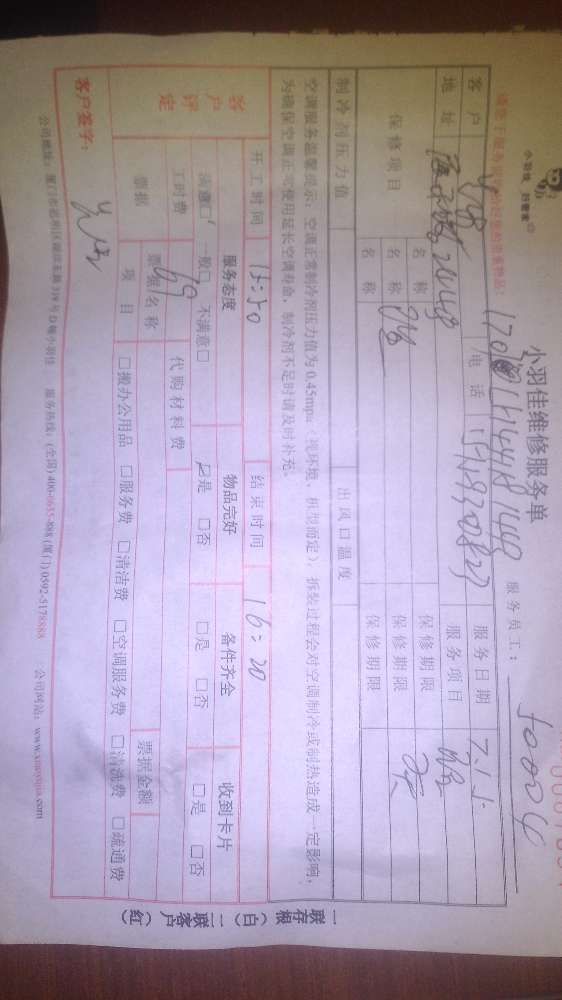 小羽佳 好管家
小羽佳维修服务单
服务员工：f0004
客户 电话 服务日期 7.15
地址 服务项目
保修项目 名称 保修期限
名称 保修期限
名称 保修期限
制冷剂压力值 出风口温度
空调服务温馨提示：空调正常制冷剂压力值为0.45mpa（视环境、机型而定），拆装过程会对空调制冷或制热造成一定影响，
为确保空调正常使用延长空调寿命，制冷剂不足时请及时补充。
开工时间 15:50 结束时间 16:20
客户评定 服务态度 物品完好 备件齐全 收到卡片
满意□ 一般□ 不满意□ □是 □否 □是 □否 □是 □否
工时费 代购材料费
票据 票据名称 票据金额
项目 □搬办公用品 □服务费 □清洁费 □空调服务费 □清洗费 □疏通费
客户签字：
服务热线：(全国)400-0655-888 (厦门)0592-5178888 公司网站：www.xiaoyujia.com
一联存根（白）二联客户（红）